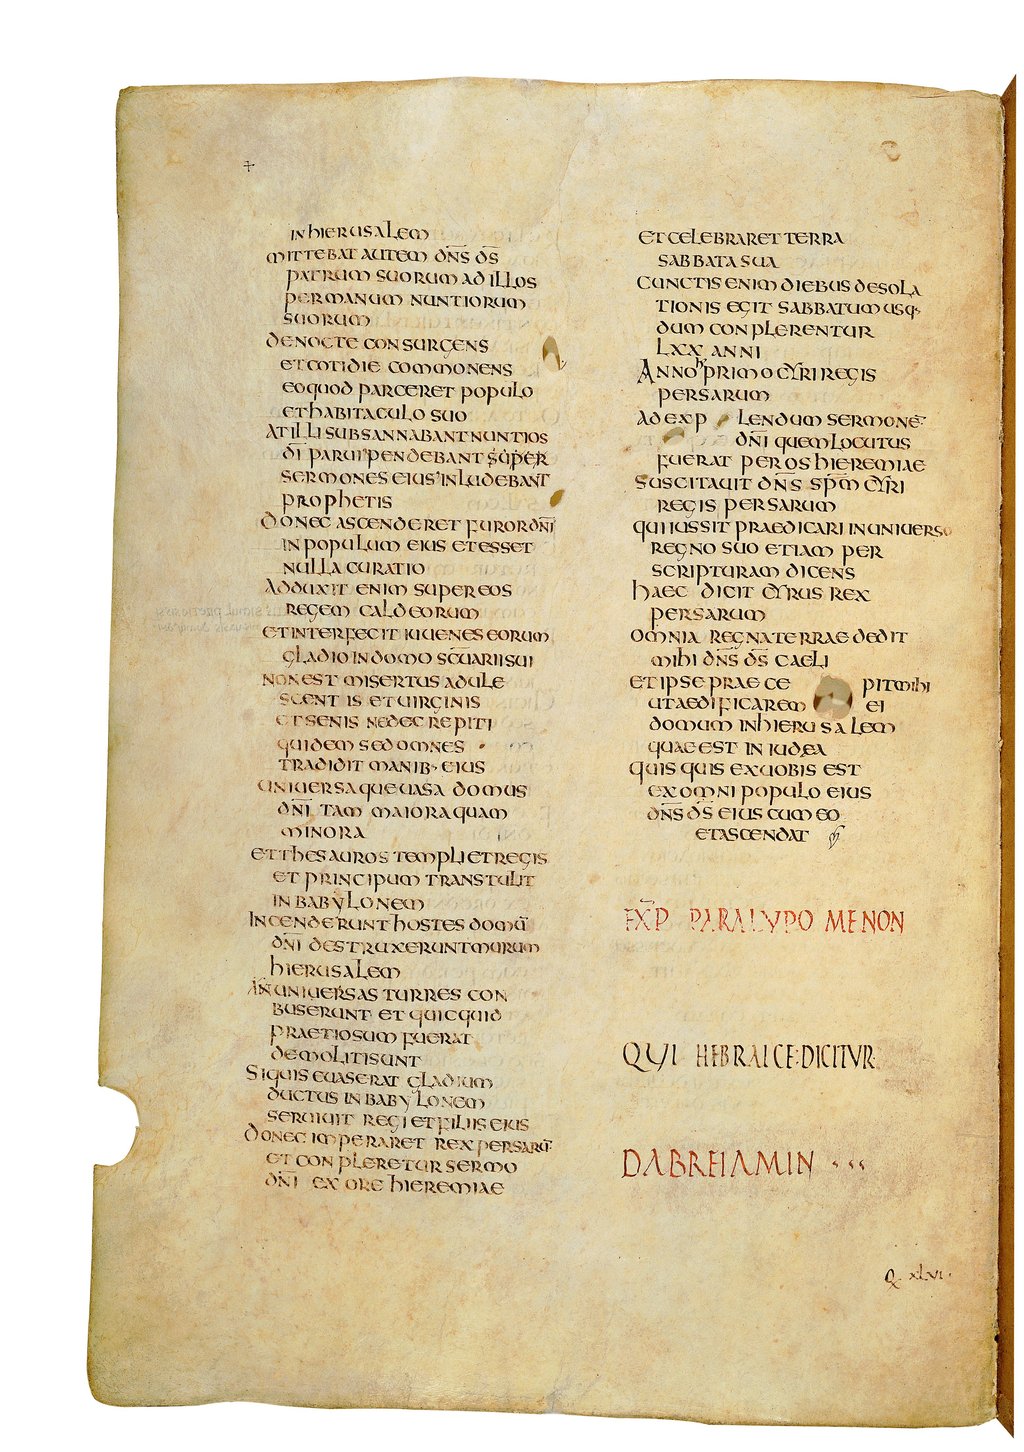 IN HIERUSALEM
MITTEBAT AUTEM DN̅S D̅S
PATRUM SUORUM AD ILLOS
PER MANUM NUNTIORUM
SUORUM
DE NOCTE CONSURGENS
ET COTIDIE COMMONENS
EO QUOD PARCERET POPULO
ET HABITACULO SUO
AT ILLI SUBSANNABANT NUNTIOS
D̅I PARUIPENDEBANT SUPER
SERMONES EIUS INLUDEBANT
PROPHETIS
DONEC ASCENDERET FUROR DN̅I
IN POPULUM EIUS ET ESSET
NULLA CURATIO
ADDUXIT ENIM SUPER EOS
REGEM CALDEORUM
ET INTERFECIT IUUENES EORUM
GLADIO IN DOMO SC̅UARII SUI
NON EST MISERTUS ADULE
SCENTIS ET UIRGINIS
ET SENIS NEDECREPITI
QUIDEM SED OMNES
TRADIDIT MANIB· EIUS
UNIUERSAQUE UASA DOMUS
DN̅I TAM MAIORA QUAM
MINORA
ET THESAUROS TEMPLI ET REGIS
ET PRINCIPUM TRANSTULIT
IN BABYLONEM
INCENDERUNT HOSTES DOMU̅
DN̅I DESTRUXERUNT MURUM
HIERUSALEM
IN UNIUERSAS TURRES CON
BUSERUNT ET QUICQUID
PRAETIOSUM FUERAT
DEMOLITI SUNT
SI QUIS EUASERAT GLADIUM
DUCTUS IN BABYLONEM
SERUIUIT REGI ET FILIIS EIUS
DONEC IMPERARET REX PERSARU̅
ET CONPLERETUR SERMO
DN̅I EX ORE HIEREMIAE
ET CELEBRARET TERRA
SABBATA SUA
CUNCTIS ENIM DIEBUS DESOLA
TIONIS EGIT SABBATUM USQ·
DUM CONPLERENTUR
LXX ANNI
ANNO PRIMO CYRI REGIS
PERSARUM
AD EXPLENDUM SERMONE̅
DN̅I QUEM LOCUTUS
FUERAT PER OS HIEREMIAE
SUSCITAUIT DN̅S SPM̅ CYRI
REGIS PERSARUM
QUI IUSSIT PRAEDICARI IN UNIUERSO
REGNO SUO ETIAM PER
SCRIPTURAM DICENS
HAEC DICIT CYRUS REX
PERSARUM
OMNIA REGNA TERRAE DEDIT
MIHI DN̅S D̅S CAELI
ET IPSE PRAECEPIT MIHI
UT AEDIFICAREM EI
DOMUM IN HIERUSALEM
QUAE EST IN IUDEA
QUIS QUIS EX UOBIS EST
EX OMNI POPULO EIUS
DN̅S D̅S EIUS CUM EO
ET ASCENDAT
EXP̅ PARALYPOMENON
QUI HEBRAICE·DICITVR
DABREIAMIN
Q XLVI·